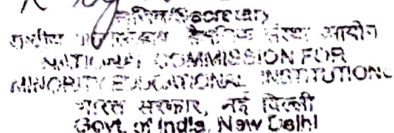 सचिव/Secretary
राष्ट्रीय अल्पसंख्यक शैक्षणिक संस्था आयोग
NATIONAL COMMISSION FOR
MINORITY EDUCATIONAL INSTITUTIONS
भारत सरकार, नई दिल्ली
Govt. of India, New Delhi